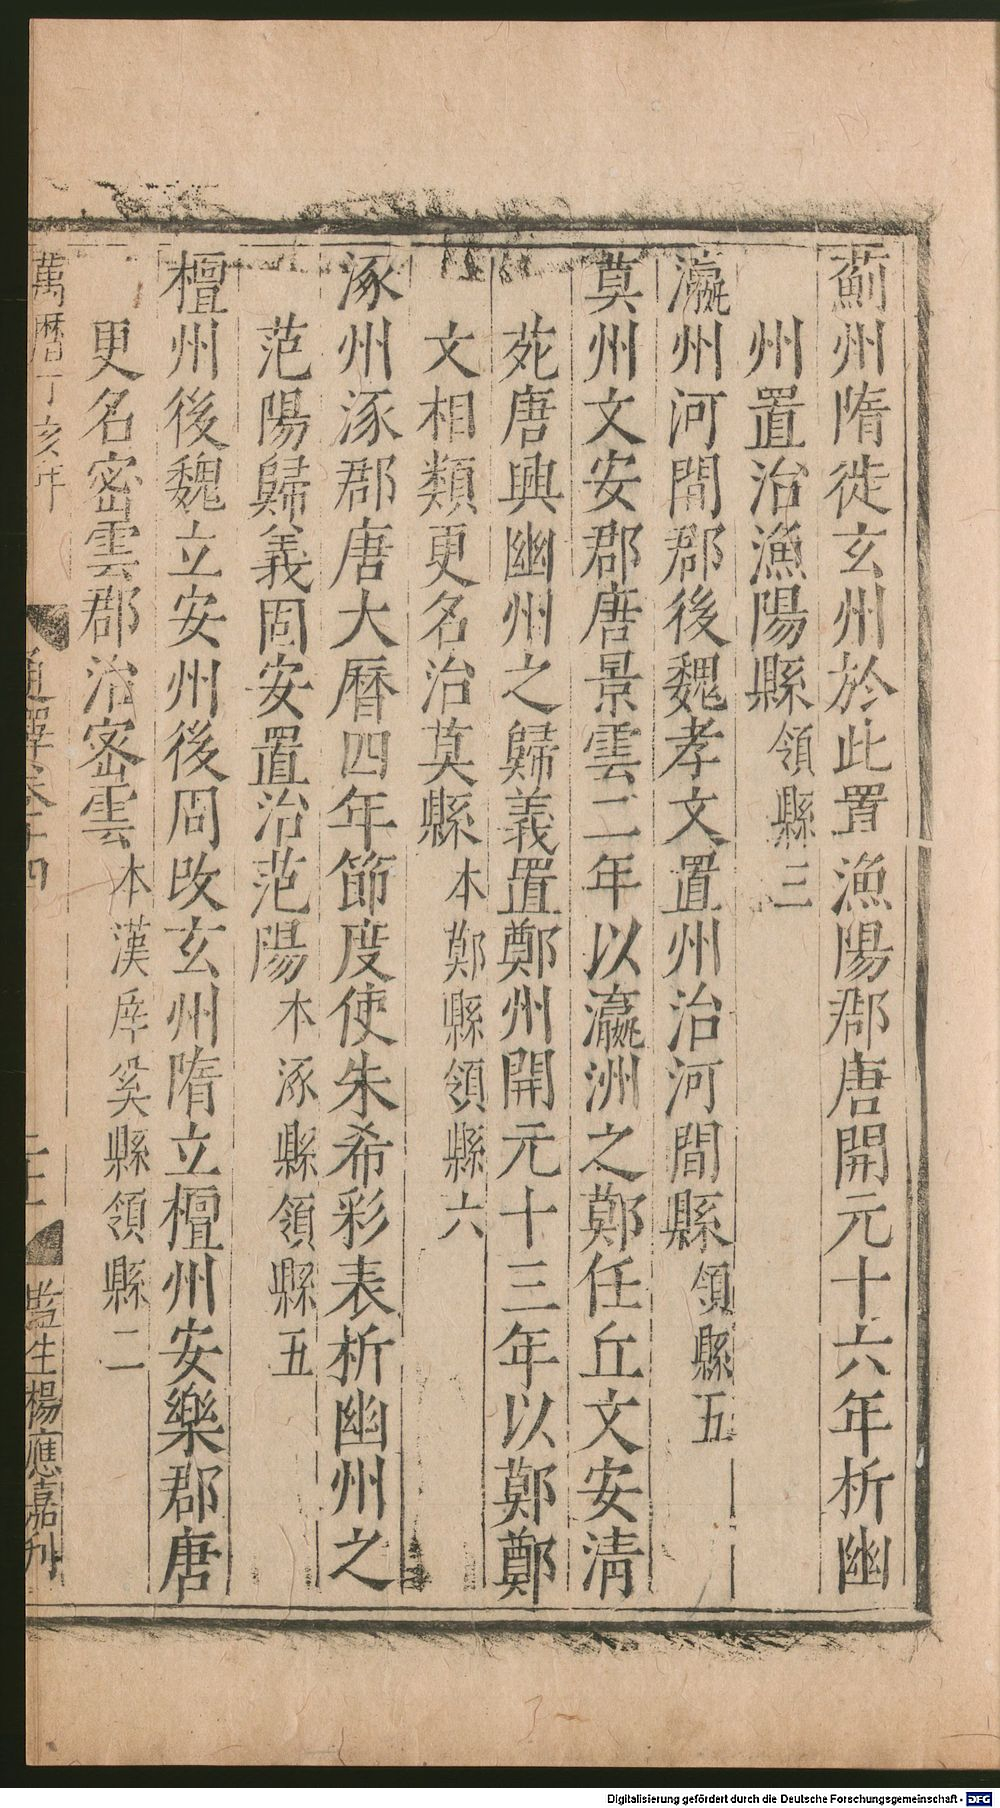 薊州隋徙玄州於此置漁陽郡唐開元十六年析幽
州置治漁陽縣領縣三
瀛州河間郡後魏孝文置州治河間縣領縣五
莫州文安郡唐景雲二年以瀛洲之鄭任丘文安淸
苑唐興幽州之歸義置鄭州開元十三年以鄭鄭
文相類更名治莫縣本鄭縣領縣六
涿州涿郡唐大曆四年節度使朱希彩表析幽州之
范陽歸義固安置治范陽本涿縣領縣五
檀州後魏立安州後周改玄州隋立檀州安樂郡唐
更名密雲郡治密雲本漢厗奚縣領縣二
萬曆丁亥年 通釋卷十四 監生楊應嘉刋
Digitalisierung gefördert durch die Deutsche Forschungsgemeinschaft - DFG